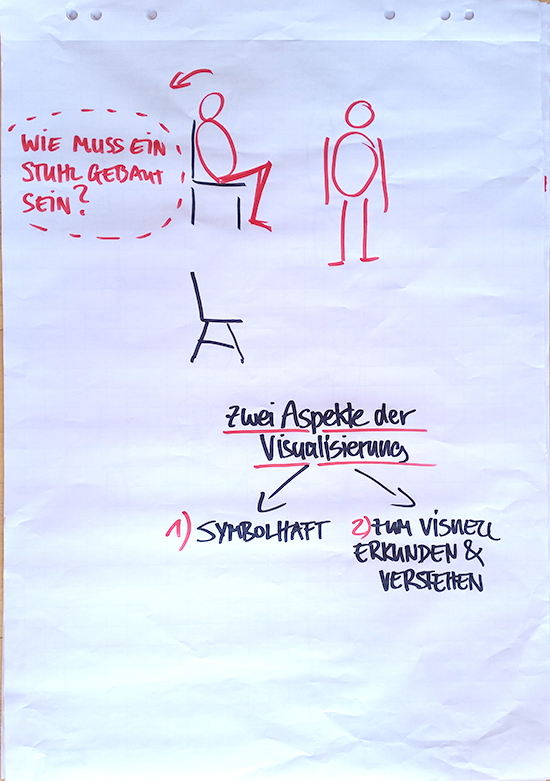 WIE MUSS EIN
STUHL GEBAUT
SEIN?
Zwei Aspekte der
Visualisierung
1) SYMBOLHAFT
2) ZUM VISUELL
ERKUNDEN &
VERSTEHEN